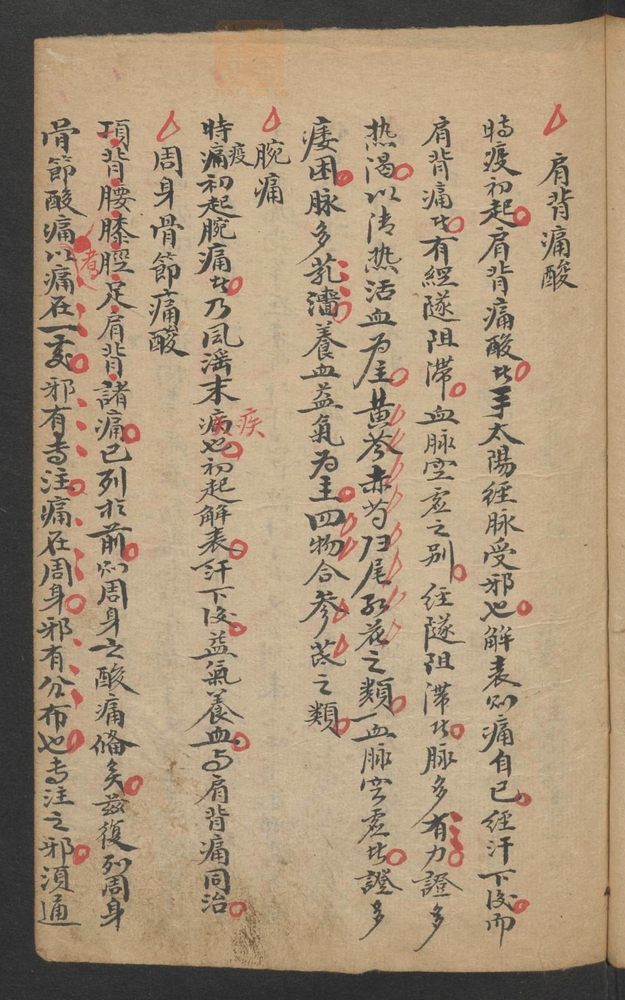 肩背痛酸
時疫初起肩背痛酸者手太陽經脉受邪也解表則痛自已經汗下後而
肩背痛者有經隧阻滯血脉空虛之別经隧阻滯者脉多有力證多
热渴以清热活血为主黄芩赤芍归尾红花之類血脉空虛者證多
痿困脉多芤濇養血益氣为主四物合参芪之類
腕痛
時疫痛初起腕痛者乃風淫末疾也初起解表汗下後益氣養血与肩背痛同治
周身骨節痛酸
項背腰膝脛足肩背諸痛已列於前則周身之酸痛俻矣兹復列周身
骨節酸痛者以痛在一處邪有专注痛在周身邪有分布也专注之邪須通